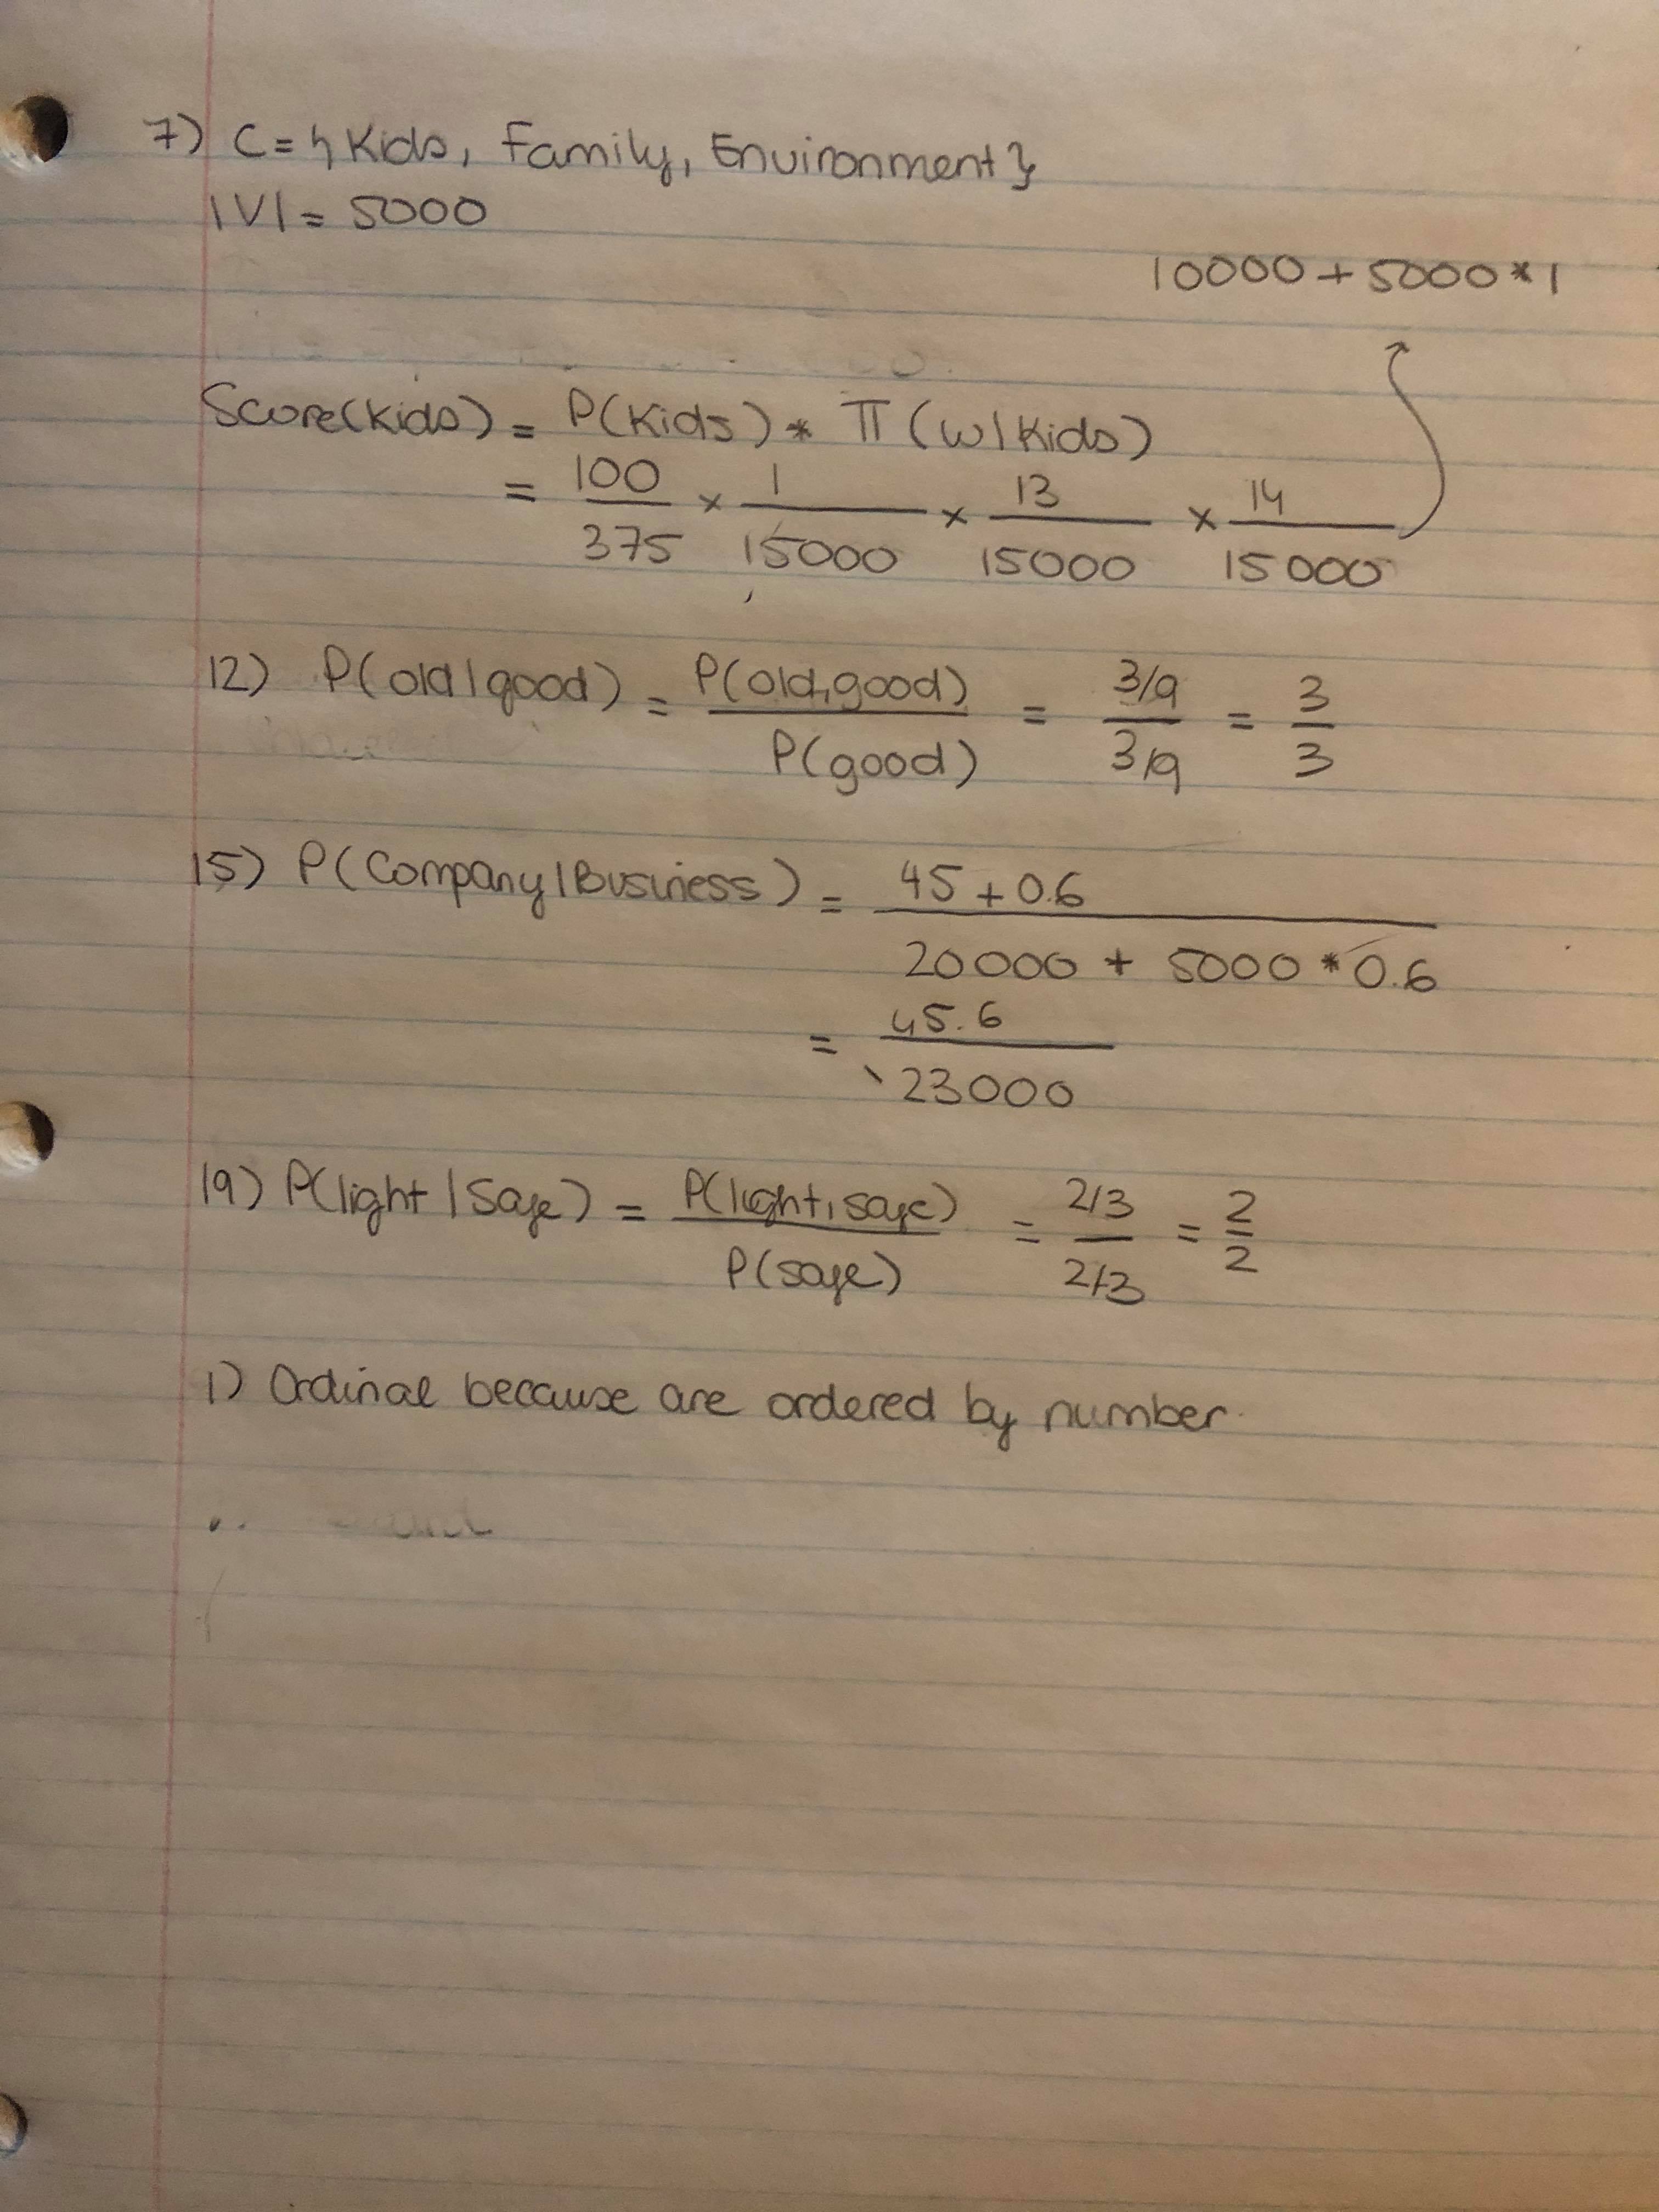 7) C = { Kids, Family, Environment }
|V| = 5000
10000 + 5000 * 1
Score(Kids) = P(Kids) * π (w|Kids)
= 100/375 × 1/15000 × 13/15000 × 14/15000
12) P(old|good) = P(old,good)/P(good) = 3/9 / 3/9 = 3/3
15) P(Company|Business) = 45 + 0.6 / 20000 + 5000 * 0.6
= 45.6 / 23000
19) P(light|Safe) = P(light,safe)/P(safe) = 2/3 / 2/3 = 2/2
1) Ordinal because are ordered by number.